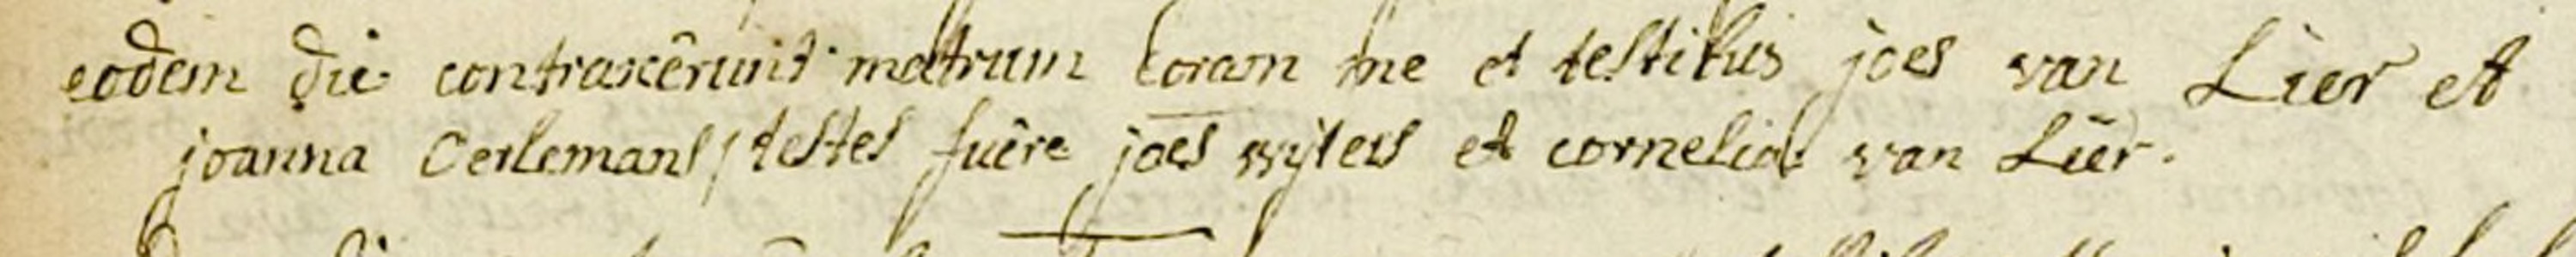 eodem die contraxerunt matrum coram me et testibus joes van Lier et
joanna Oerlemans / testes fuere joes wijters et cornelia van Lier.